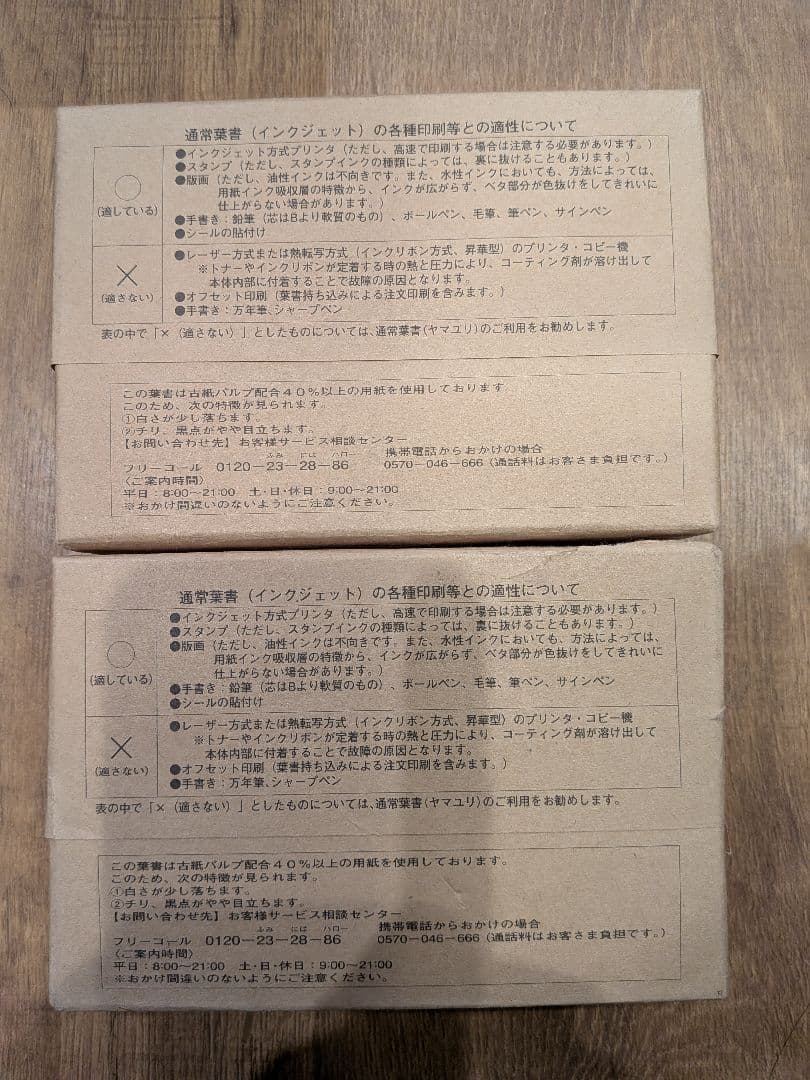 通常葉書（インクジェット）の各種印刷等との適性について
○
（適している）
●インクジェット方式プリンタ（ただし、高速で印刷する場合は注意する必要があります。）
●スタンプ（ただし、スタンプインクの種類によっては、裏に抜けることもあります。）
●版画（ただし、油性インクは不向きです。また、水性インクにおいても、方法によっては、
用紙インク吸収層の特徴から、インクが広がらず、ベタ部分が色抜けをしてきれいに
仕上がらない場合があります。）
●手書き：鉛筆（芯はBより軟質のもの）、ボールペン、毛筆、筆ペン、サインペン
●シールの貼付け
×
（適さない）
●レーザー方式または熱転写方式（インクリボン方式、昇華型）のプリンタ・コピー機
※トナーやインクリボンが定着する時の熱と圧力により、コーティング剤が溶け出して
本体内部に付着することで故障の原因となります。
●オフセット印刷（葉書持ち込みによる注文印刷を含みます。）
●手書き：万年筆、シャープペン
表の中で「×（適さない）」としたものについては、通常葉書（ヤマユリ）のご利用をお勧めします。
この葉書は古紙パルプ配合４０％以上の用紙を使用しております。
このため、次の特徴が見られます。
①白さが少し落ちます。
②チリ、黒点がやや目立ちます。
【お問い合わせ先】お客様サービス相談センター
携帯電話からおかけの場合
ふみ には ハロー
フリーコール 0120－23－28－86 0570－046－666（通話料はお客さま負担です。）
〈ご案内時間〉
平日：8:00～21:00 土・日・休日：9:00～21:00
※おかけ間違いのないようにご注意ください。
通常葉書（インクジェット）の各種印刷等との適性について
○
（適している）
●インクジェット方式プリンタ（ただし、高速で印刷する場合は注意する必要があります。）
●スタンプ（ただし、スタンプインクの種類によっては、裏に抜けることもあります。）
●版画（ただし、油性インクは不向きです。また、水性インクにおいても、方法によっては、
用紙インク吸収層の特徴から、インクが広がらず、ベタ部分が色抜けをしてきれいに
仕上がらない場合があります。）
●手書き：鉛筆（芯はBより軟質のもの）、ボールペン、毛筆、筆ペン、サインペン
●シールの貼付け
×
（適さない）
●レーザー方式または熱転写方式（インクリボン方式、昇華型）のプリンタ・コピー機
※トナーやインクリボンが定着する時の熱と圧力により、コーティング剤が溶け出して
本体内部に付着することで故障の原因となります。
●オフセット印刷（葉書持ち込みによる注文印刷を含みます。）
●手書き：万年筆、シャープペン
表の中で「×（適さない）」としたものについては、通常葉書（ヤマユリ）のご利用をお勧めします。
この葉書は古紙パルプ配合４０％以上の用紙を使用しております。
このため、次の特徴が見られます。
①白さが少し落ちます。
②チリ、黒点がやや目立ちます。
【お問い合わせ先】お客様サービス相談センター
携帯電話からおかけの場合
ふみ には ハロー
フリーコール 0120－23－28－86 0570－046－666（通話料はお客さま負担です。）
〈ご案内時間〉
平日：8:00～21:00 土・日・休日：9:00～21:00
※おかけ間違いのないようにご注意ください。